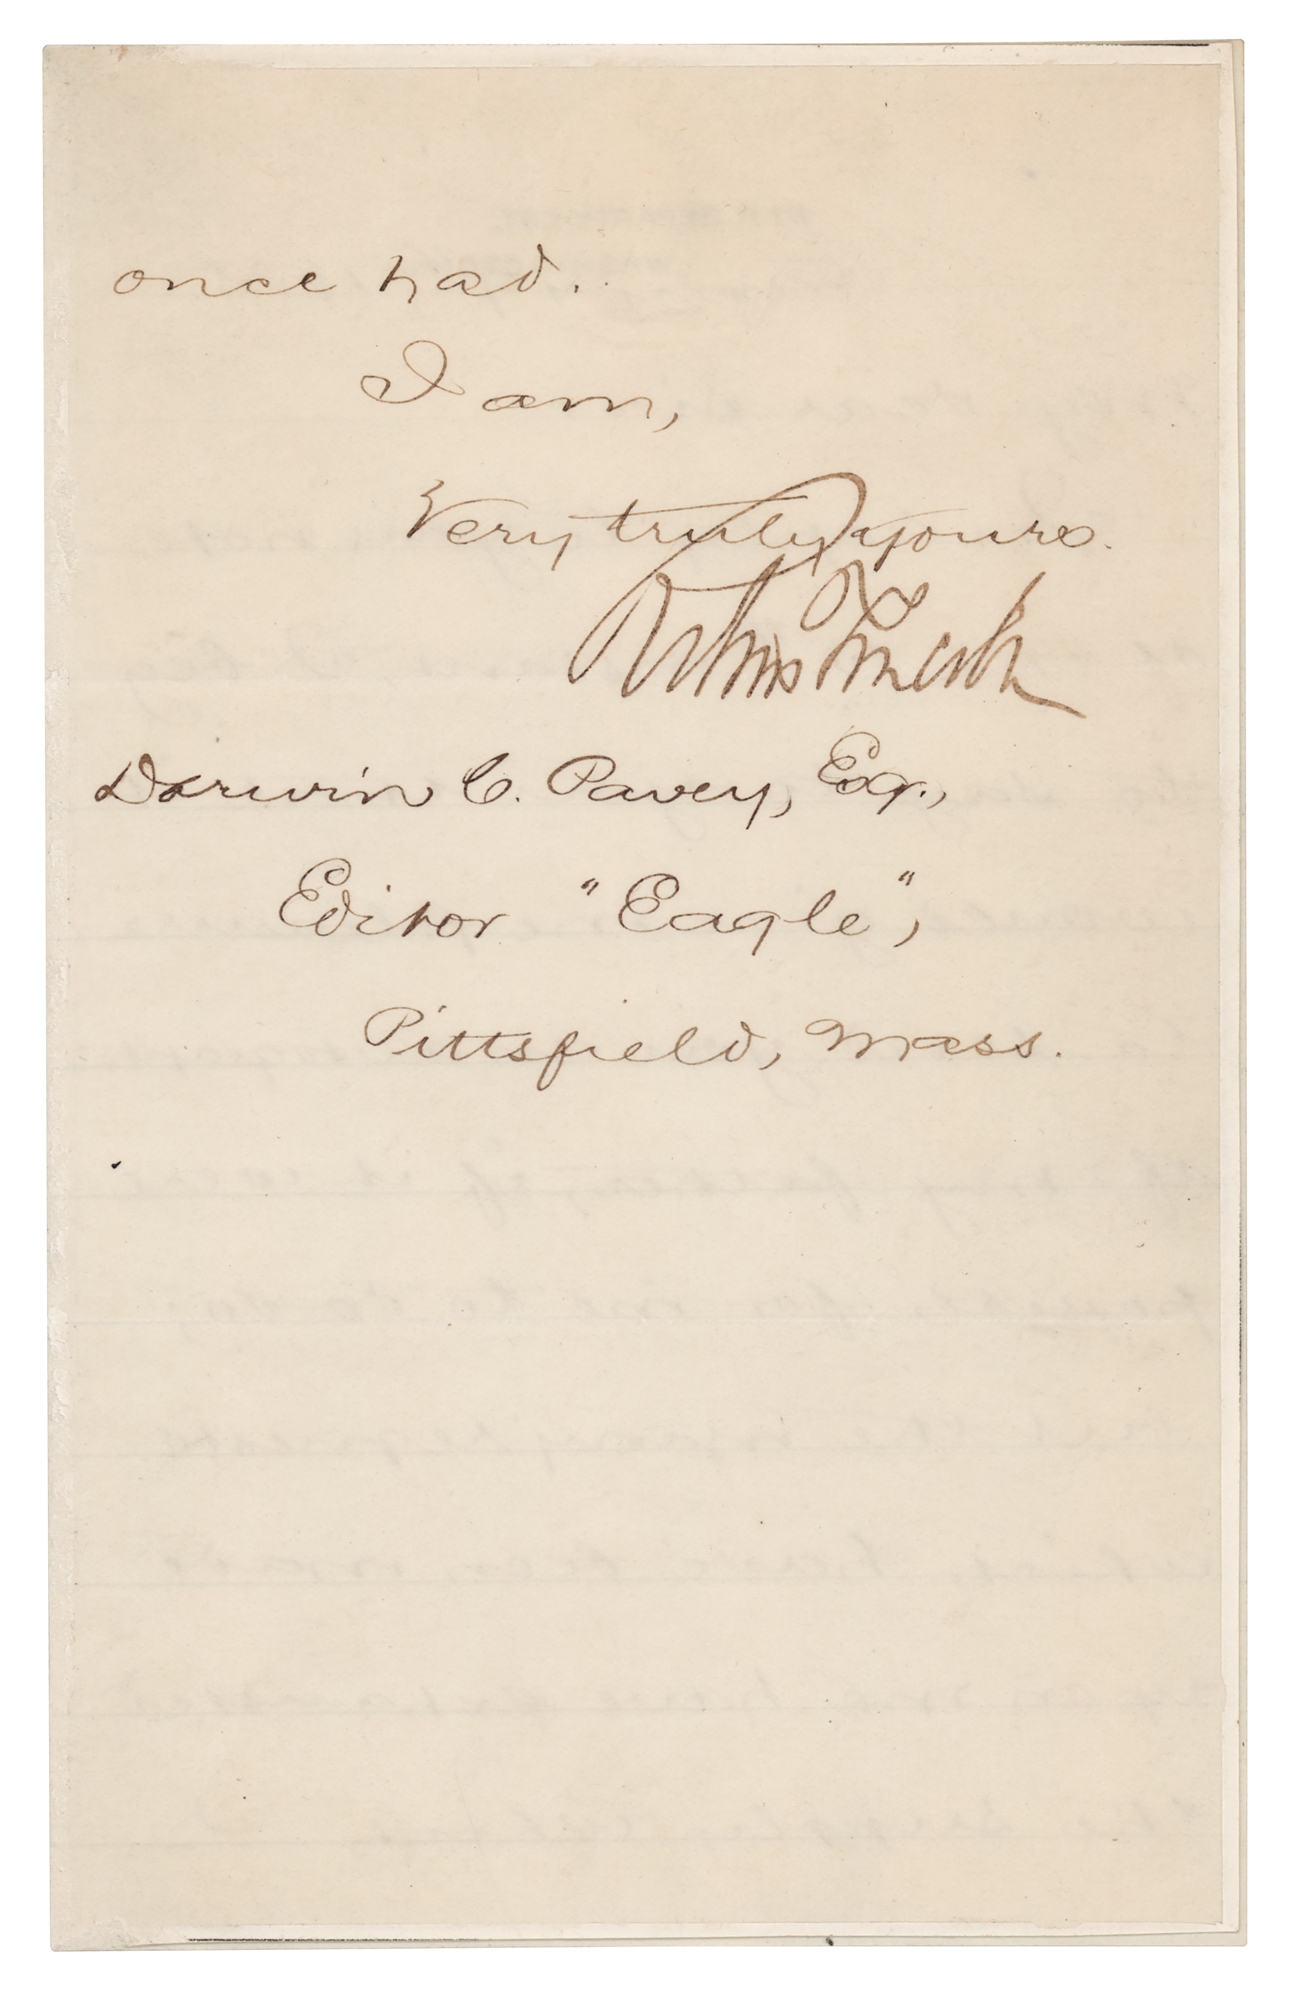 once had.
I am,
Very truly yours.
Robert T. Lincoln
Darwin C. Pavey, Esq.,
Editor "Eagle",
Pittsfield, Mass.